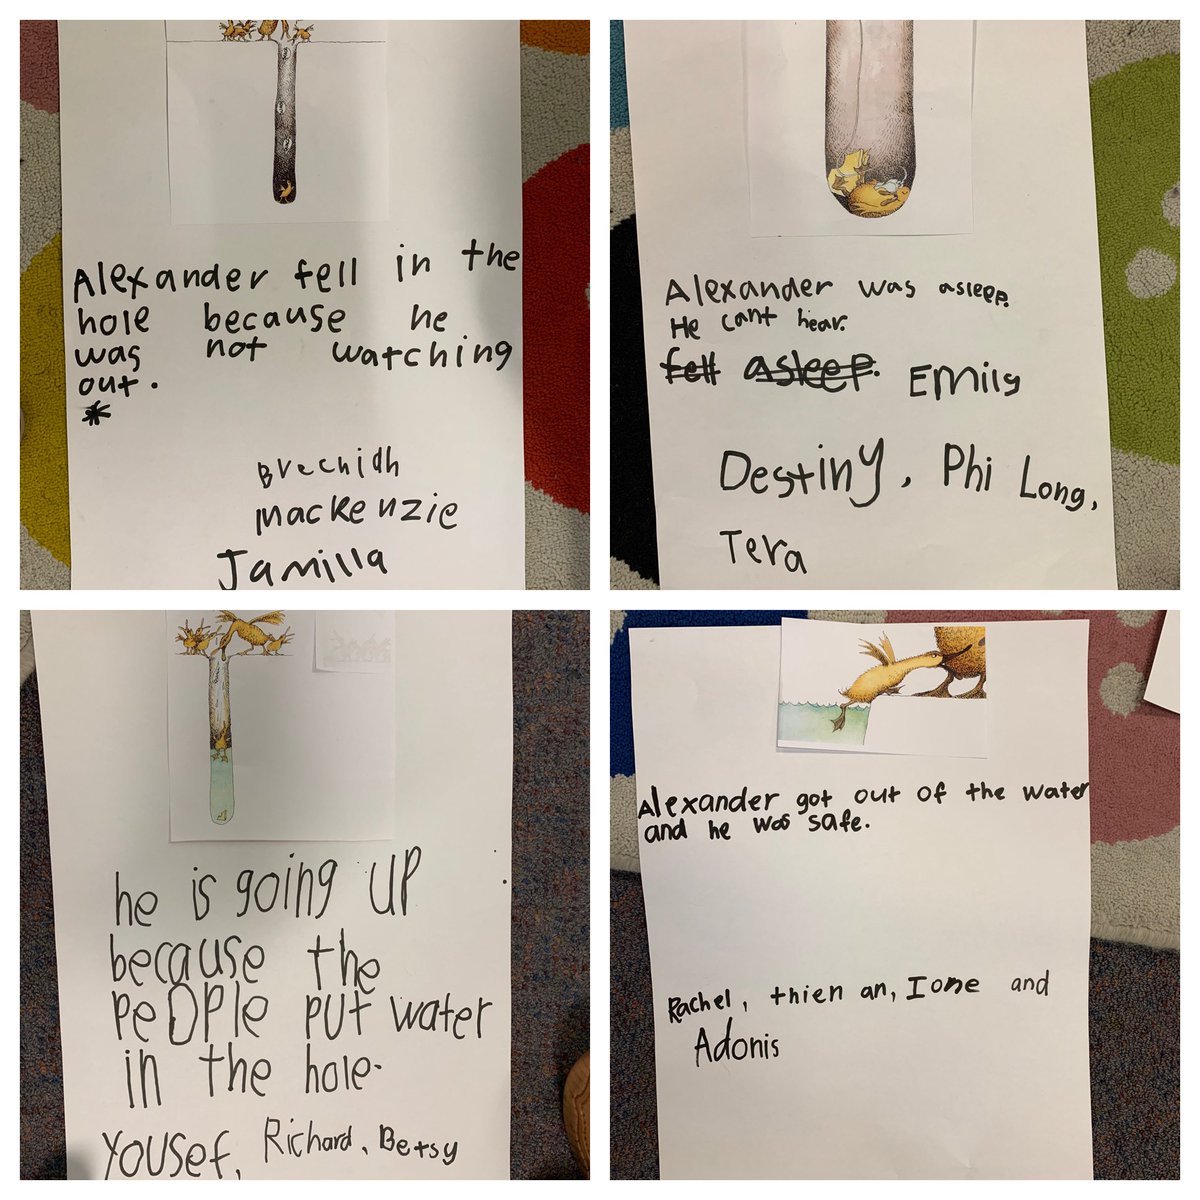 Alexander fell in the
hole because he
was not watching
out.
*
Brechidh
mackenzie
Jamilla
Alexander was asleep.
He cant hear.
fell asleep. Emily
Destiny, Phi Long,
Tera
he is going up
because the
PeOPle PUT water
in the hole.
Yousef, Richard, Betsy
Alexander got out of the water
and he was safe.
Rachel, thien an, Ione and
Adonis